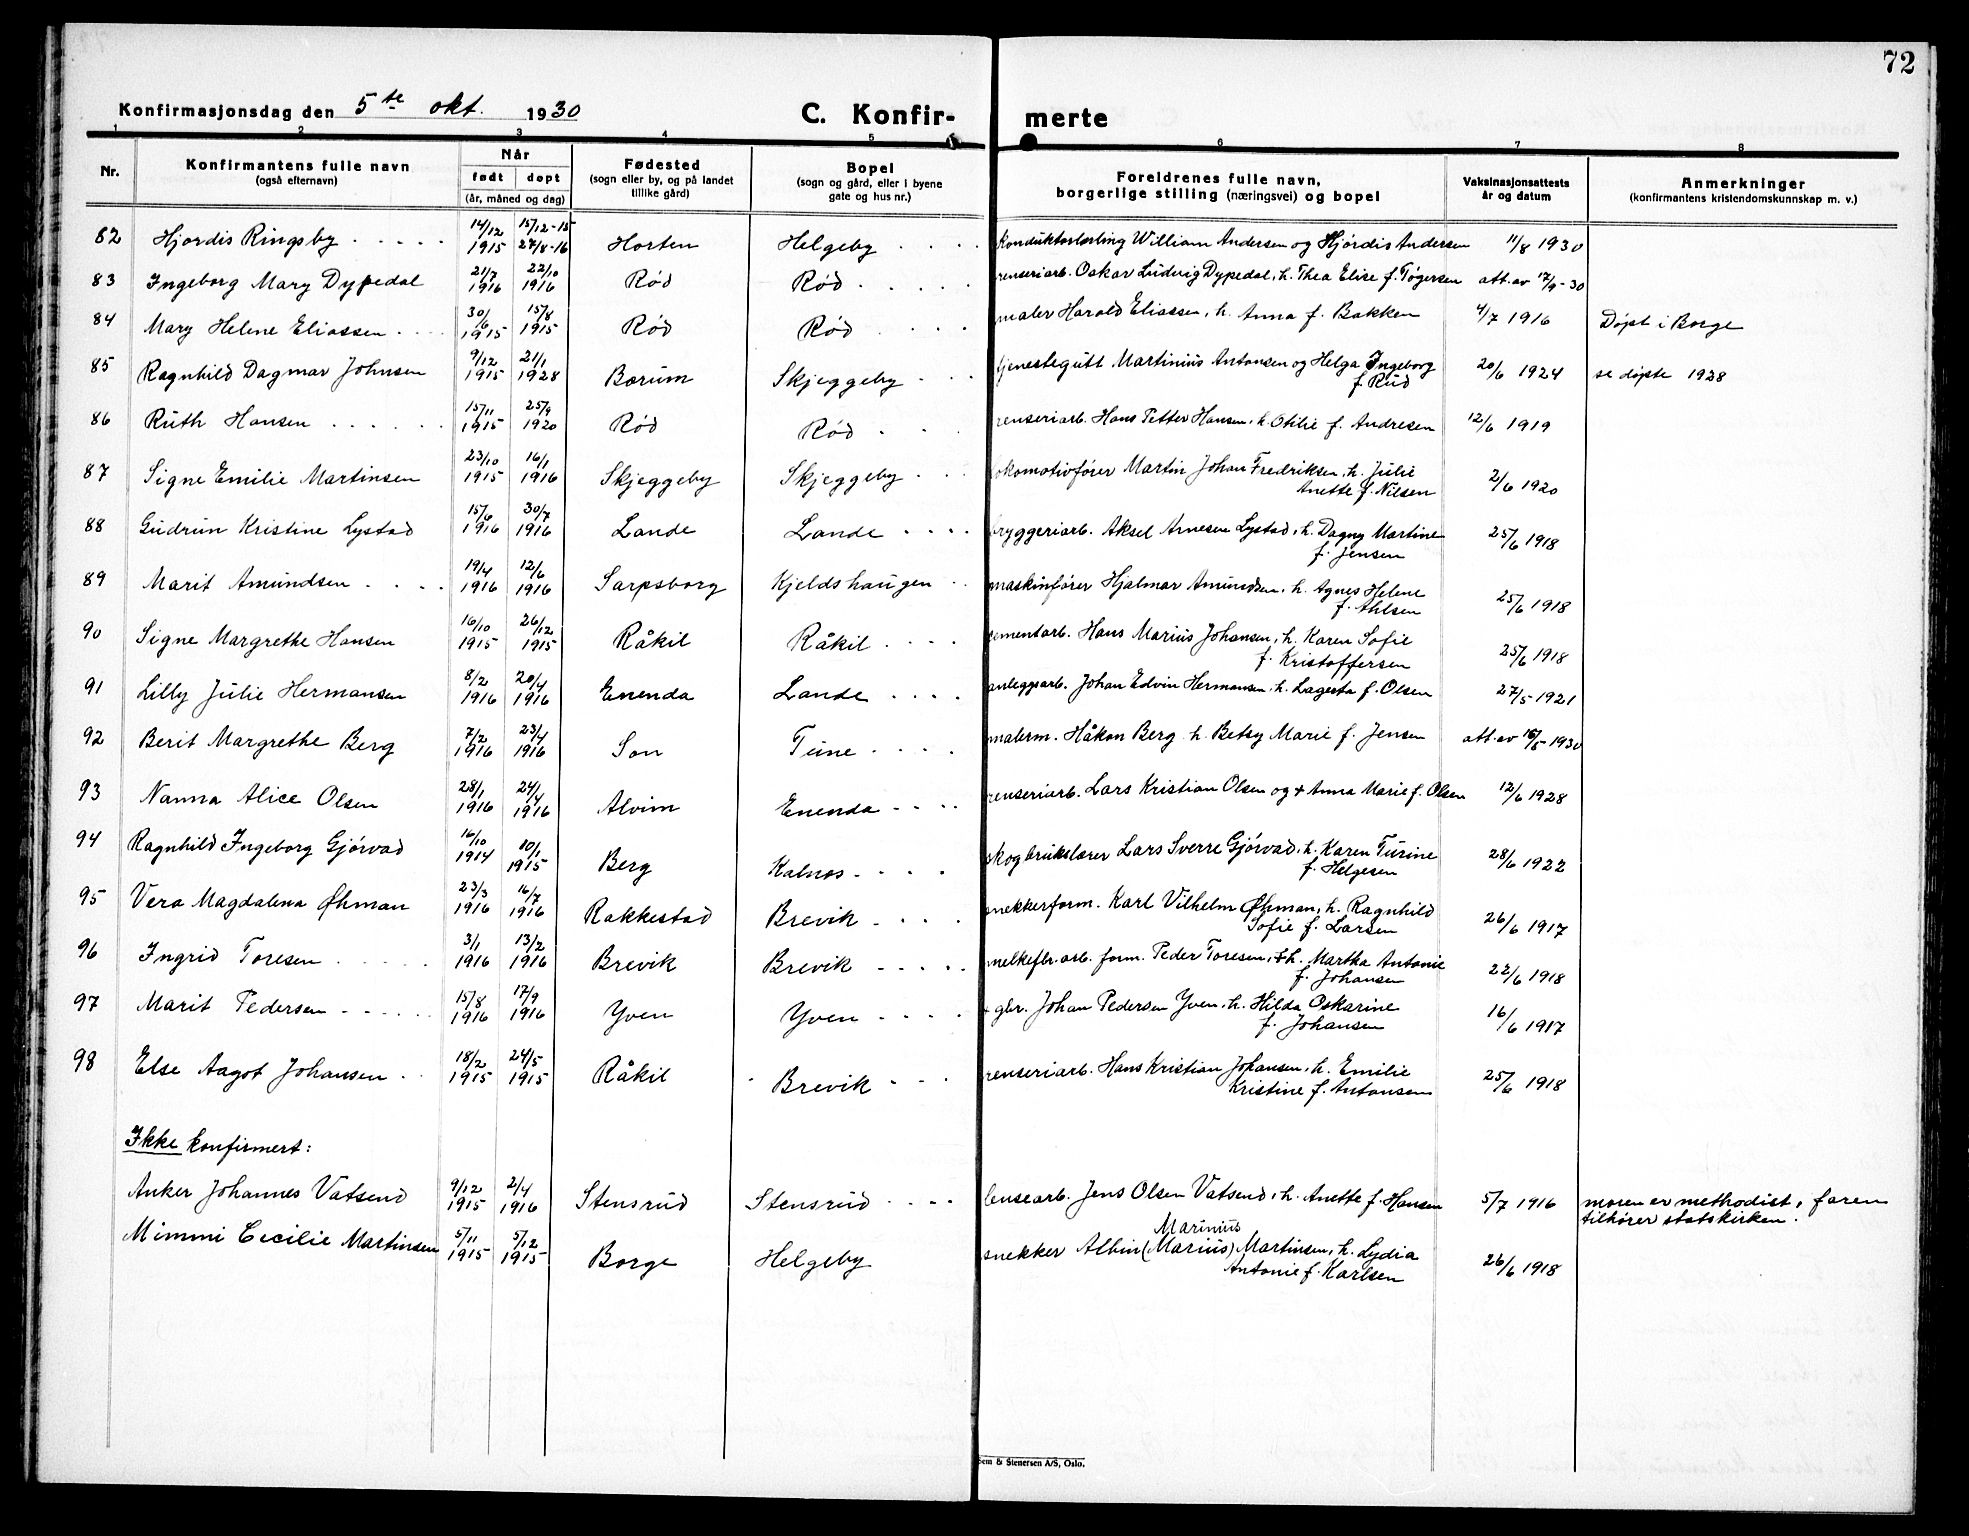 72
Konfirmasjonsdag den 5te okt. 1930 C. Konfir- merte
1 2 3 4 5 6 7 8
Nr. Konfirmantens fulle navn (også efternavn) Når født døpt (år, måned og dag) Fødested (sogn eller by, og på landet tillike gård) Bopel (sogn og gård, eller i byene gate og hus nr.) Foreldrenes fulle navn, borgerlige stilling (næringsvei) og bopel Vaksinasjonsattests år og datum Anmerkninger (konfirmantens kristendomskunnskap m. v.)
82 Hjørdis Ringsby 14/12 1915 15/12-15 27/8-16 Horten Helgeby konduktørlærling William Andersen og Hjørdis Andersen 11/8 1930
83 Ingeborg Mary Dypedal 21/7 1916 22/10 1916 Rød Rød renseriarb. Oskar Ludvig Dypedal, h. Thea Elise f. Tøgersen att. av 17/9-30
84 Mary Helene Eliassen 30/6 1915 15/8 1915 Rød Rød maler Harald Eliassen, h. Anna f. Bakken 4/7 1916 Døpt i Borge
85 Ragnhild Dagmar Johnsen 9/12 1915 21/1 1928 Bærum Skjeggeby tjenestegutt Martinius Antonsen og Helga Ingeborg f. Rud 20/6 1924 se døpte 1928
86 Ruth Hansen 15/11 1915 25/9 1920 Rød Rød renseriarb. Hans Petter Hansen, h. Otilie f. Andresen 12/6 1919
87 Signe Emilie Martinsen 23/10 1915 16/1 1916 Skjeggeby Skjeggeby lokomotivfører Martin Johan Fredriksen, h. Julie Anette f. Nilsen 2/6 1920
88 Gudrun Kristine Lystad 15/6 1916 30/7 1916 Lande Lande bryggeriarb. Aksel Arnesen Lystad, h. Dagny Martine f. Jensen 25/6 1918
89 Marit Amundsen 19/4 1916 12/6 1916 Sarpsborg Kjeldshaugen maskinfører Hjalmar Amundsen, h. Agnes Helene f. Ahlsen 25/6 1918
90 Signe Margrethe Hansen 16/10 1915 26/12 1915 Råkil Råkil sementarb. Hans Marius Johansen, h. Karen Sofie f. Kristoffersen 25/6 1918
91 Lilly Julie Hermansen 8/2 1916 20/4 1916 Enenda Lande anleggsarb. Johan Edvin Hermansen, h. Lagesta f. Olsen 27/5-1921
92 Berit Margrethe Berg 7/2 1916 23/4 1916 Son Tune malerm. Håkon Berg h. Betsy Marie f. Jensen att. av 16/5-1930
93 Nanna Alice Olsen 28/1 1916 24/4 1916 Alvim Enenda renseriarb. Lars Kristian Olsen og + Anna Marie f. Olsen 12/6 1928
94 Ragnhild Ingeborg Gjörvad 16/10 1914 10/1 1915 Berg Kalnes skogbrukslærer Lars Sverre Gjörvad, h. Karen Turine f. Helgesen 28/6 1922
95 Vera Magdalena Øhman 23/3 1916 16/7 1916 Rakkestad Brevik snekkerform. Karl Vilhelm Øhman, h. Ragnhild Sofie f. Larsen 26/6 1917
96 Ingrid Toresen 3/1 1916 13/2 1916 Brevik Brevik melkefbr.arb. form. Peder Toresen, +h. Martha Antonie f. Johansen 22/6 1918
97 Marit Pedersen 15/8 1916 17/9 1916 Yven Yven + gbr. Johan Pedersen Yven, h. Hilda Oskarine f. Johansen 16/6 1917
98 Else Aagot Johansen 18/2 1915 24/5 1915 Råkil Brevik renseriarb. Hans Kristian Johansen, h. Emilie Kristine f. Antonsen 25/6 1918
Ikke konfirmert:
Anker Johannes Vatsend 9/12 1915 2/4 1916 Stensrud Stensrud lensearb. Jens Olsen Vatsend, h. Anette f. Hansen 5/7 1916 moren er methodist, faren tilhører statskirken.
Mimmi Cecilie Martinsen 5/11 1915 5/12 1915 Borge Helgeby snekker Albin (Marius) Marinius Martinsen, h. Lydia Antonie f. Karlsen 26/6 1918
Sem & Stenersen A/S, Oslo.